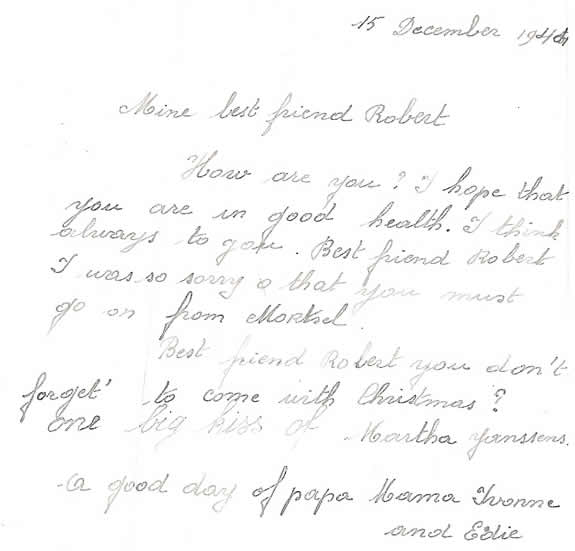 15 December 1944
Mine best friend Robert
How are you? I hope that
you are in good health. I think
always to you. Best friend Robert
I was so sorry o that you must
go on from Mortsel
Best friend Robert you don't
forget' to come with Christmas?
one big kiss of Martha Yanssens.
A good day of papa Mama Ivonne
and Eddie